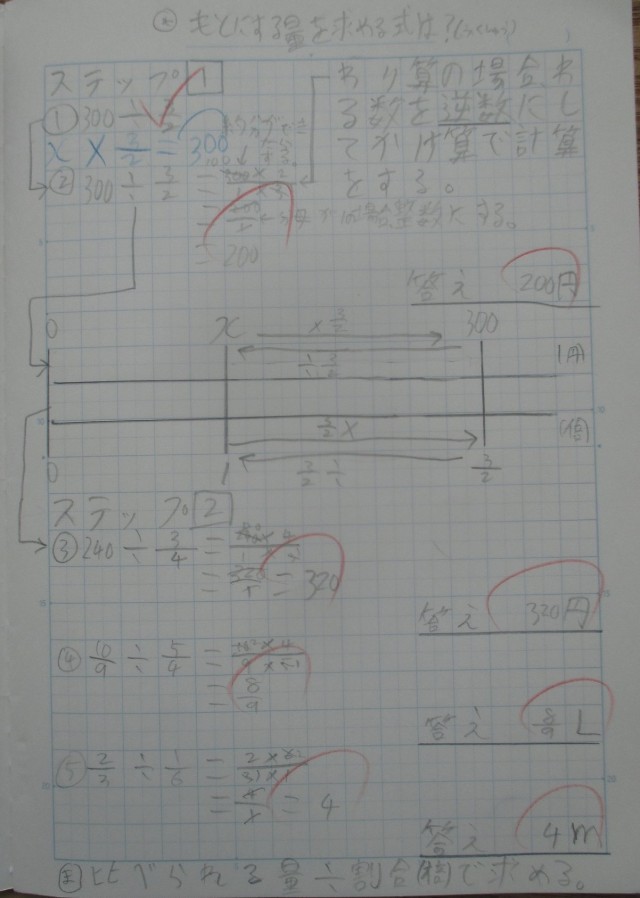 もとにする量を求める式は?
ステップ 1
① 300 ÷ 3/2
x × 3/2 = 300
② 300 ÷ 3/2 = 300×2/1×3
= 200/1
= 200
わり算の場合わ
る数を逆数にし
てかけ算で計算
をする。
答え 200円
0 x × 3/2 300
÷ 3/2 (円)
3/2 × (倍)
0 1 3/2 ÷ 3/2
ステップ 2
③ 240 ÷ 3/4 = 240×4/1×3
= 320/1 = 320
答え 320円
④ 10/9 ÷ 5/4 = 10×4/9×5
= 8/9
答え 8/9 L
⑤ 2/3 ÷ 1/6 = 2×6/3×1
= 4/1 = 4
答え 4m
ま 比べられる量÷割合(倍)で求める。